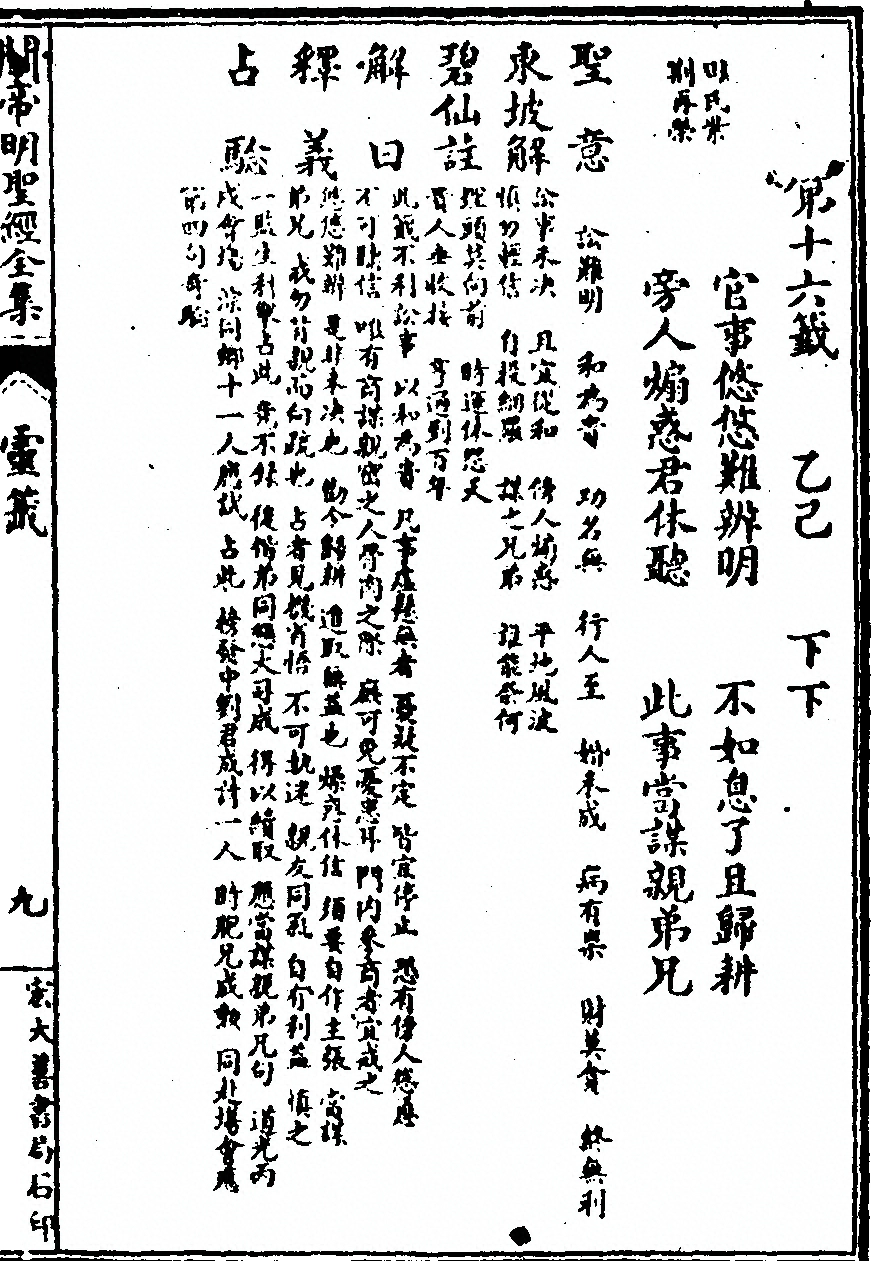 第十六籤 乙己 下下
官事悠悠難辨明 不如息了且歸耕
旁人煽惑君休聽 此事當謀親弟兄
田氏紫
荆再榮
聖意 訟難明 和為貴 功名無 行人至 婚未成 病有祟 財莫貪 終無利
東坡解 訟事未決 且宜從和 傍人煽惑 平地風波
慎勿輕信 自投網羅 謀之兄弟 誰能奈何
碧仙註 埋頭莫向前 時運休怨天
貴人垂收接 亨通到百年
解曰 此籤不利訟事 以和為貴 凡事虛懸無著 憂疑不定 皆宜停止 恐有傍人慫恿
不可聽信 唯有商謀親密之人骨肉之際 庶可免憂患耳 門內參商者宜戒之
釋義 悠悠難辨 是非未決也 勸令歸耕 進取無益也 煽惑休信 須要自作主張 當謀
弟兄 戒勿背親而向疏也 占者見機省悟 不可執迷 親友同 自有利益 慎之
占驗 一監生利舉占此 榮不錄 後偕弟同懇大司成 得以續取 應當謀親弟兄句 道光丙
戌會場 深同鄉十一人應試 占此 榜發中劉君成 一人 時胞兄成 同赴場會應
第四句奇驗
關帝明聖經全集
靈籤
九
宏大善書局石印